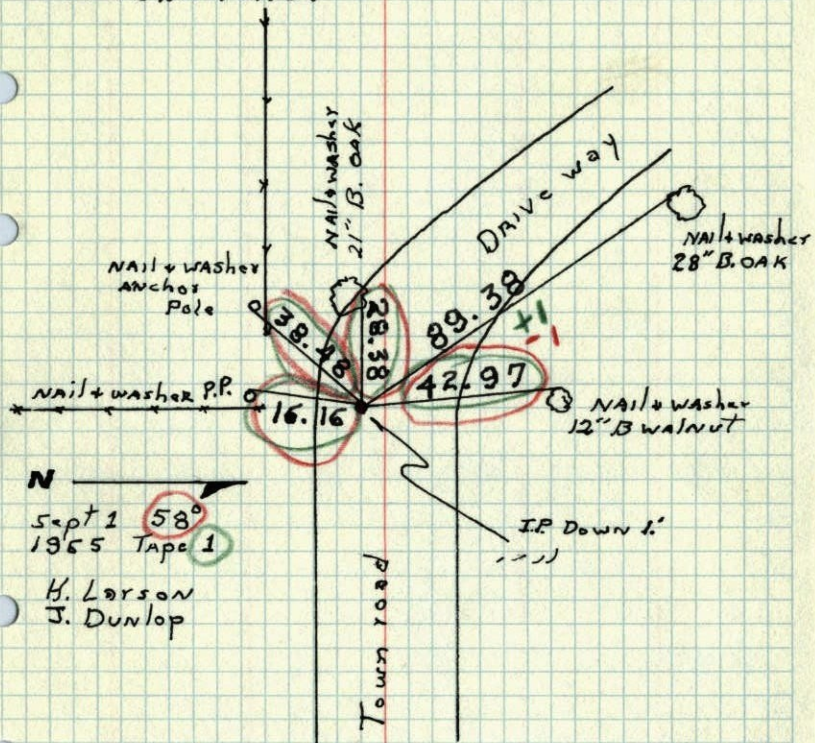 NAil + WASher
21" B. OAK
Drive way
NAil + WASher
28" B. OAK
NAil + WASher
ANchor
Pole
38.48
28.38
89.38
+1
-1
42.97
NAil + WASher P.P.
16.16
NAil + WASher
12" B WALNUT
N
Sept 1 58°
1955 TApe 1
K. LArson
J. Dunlop
I.P. DowN 1.'
Town road